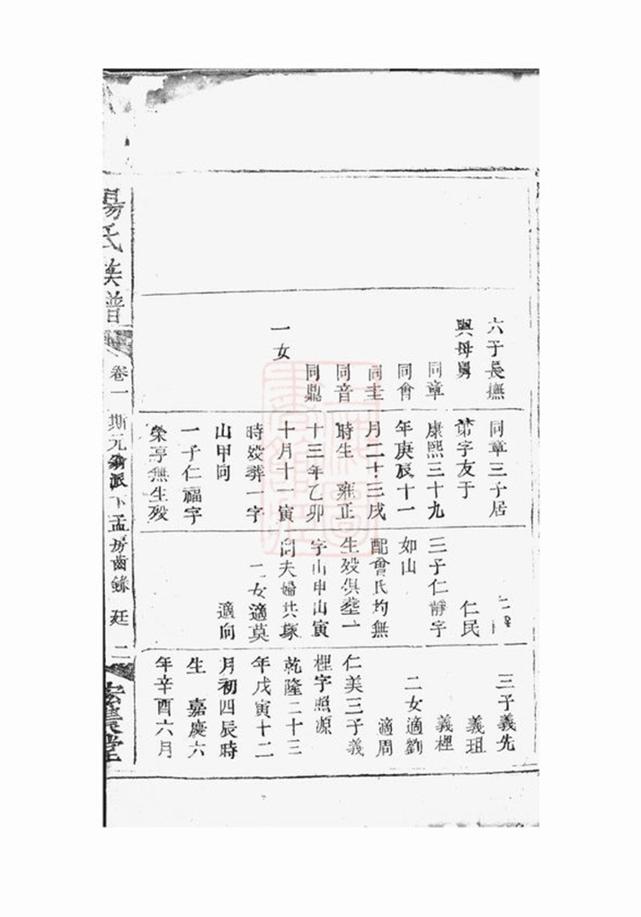 六子長撫
與母舅
同章
同會
同圭
同音
同鼎
一女
同章三子居
第字友于
康熙三十九
年庚辰十一
月二十三戌
時生 雍正
十三年乙卯
十月十一寅
時歿葬一字
山甲向
一子仁福字
榮亨無生歿
仁民
三子仁靜字
如山
配會氏均無
生歿俱葬一
字山申山寅
向夫婦共塚
二女適莫
適向
三子義先
義珇
義梩
二女適劉
適周
仁美三子義
梩字照源
乾隆二十三
年戊寅十二
月初四辰時
生 嘉慶六
年辛酉六月
楊氏族譜
卷一 斯元翁派下孟房齒錄 廷 二
農堂